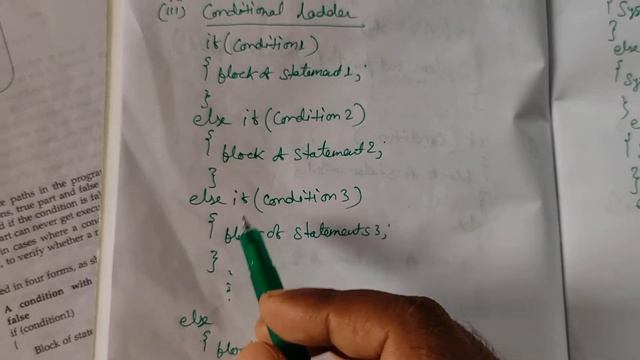 (iii) Conditional ladder
if (Condition1)
{ block of statement1;
}
else if (Condition 2)
{ block of statement2;
}
else if (Condition 3)
{ block of statements3;
}
:
:
else
{ blo
{ Sys
}
else
{ Sy
}
e
{
}
e paths in the progra
ns, true part and false
d if the condition is fal
art can never get exec
in cases where a con
, to verify whether a r
ed in four forms, as sh
A condition with
false
if (condition1)
{
Block of state